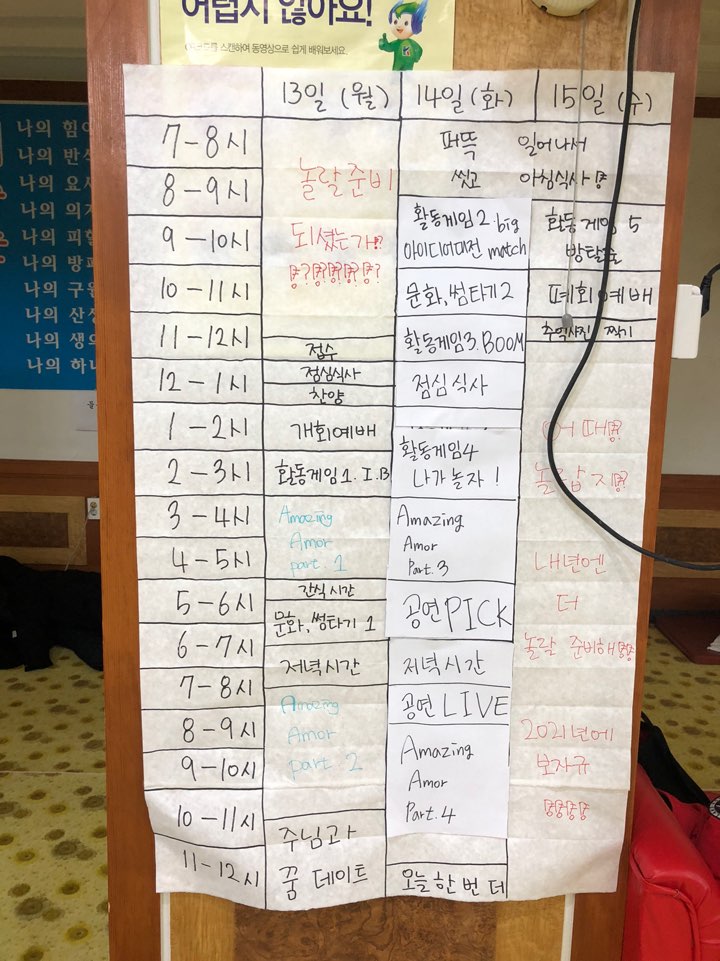 어렵지 않아요!
를 스캔하여 동영상으로 쉽게 배워보세요.
나의 힘이
나의 반석
나의 요새
나의 의지
나의 피할
나의 방패
나의 구원
나의 산성
나의 생의
나의 하나
13일 (월) 14일 (화) 15일 (수)
7-8시
8-9시
9-10시
10-11시
11-12시
12-1시
1-2시
2-3시
3-4시
4-5시
5-6시
6-7시
7-8시
8-9시
9-10시
10-11시
11-12시
놀랄 준비
되셨는가!?
접수
점심식사
찬양
개회예배
활동게임 1. I.B
Amazing
Amor
part 1
간식 시간
문화, 썸타기 1
저녁시간
Amazing
Amor
part 2
주님과
꿈 데이트
퍼뜩 일어나서
씻고 아침식사
활동게임 2. big
아이디어대전 match
문화, 썸타기 2
활동게임3. BOOM
점심 식사
활동게임4
나가 놀자!
Amazing
Amor
Part. 3
공연 PICK
저녁시간
공연 LIVE
Amazing
Amor
Part. 4
오늘 한 번 더
활동게임 5
방탈출
폐회예배
추억사진 찍기
내년엔
더
놀랄 준비해
2021년에
보자규